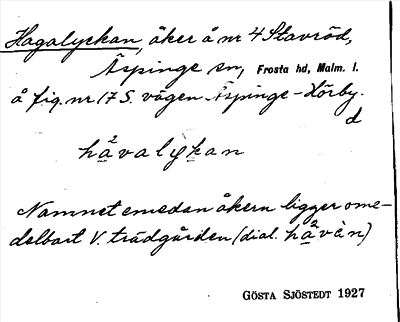 Hagalyckan, åker å nr 4 Stavröd,
Äspinge sn, Frosta hd, Malm. l.
å fig. nr 17 S. vägen Äspinge-Hörby.
d
hä²valykan
Namnet emedan åkern ligger ome-
delbart V. trädgården (dial. hä²vàn)
GÖSTA SJÖSTEDT 1927